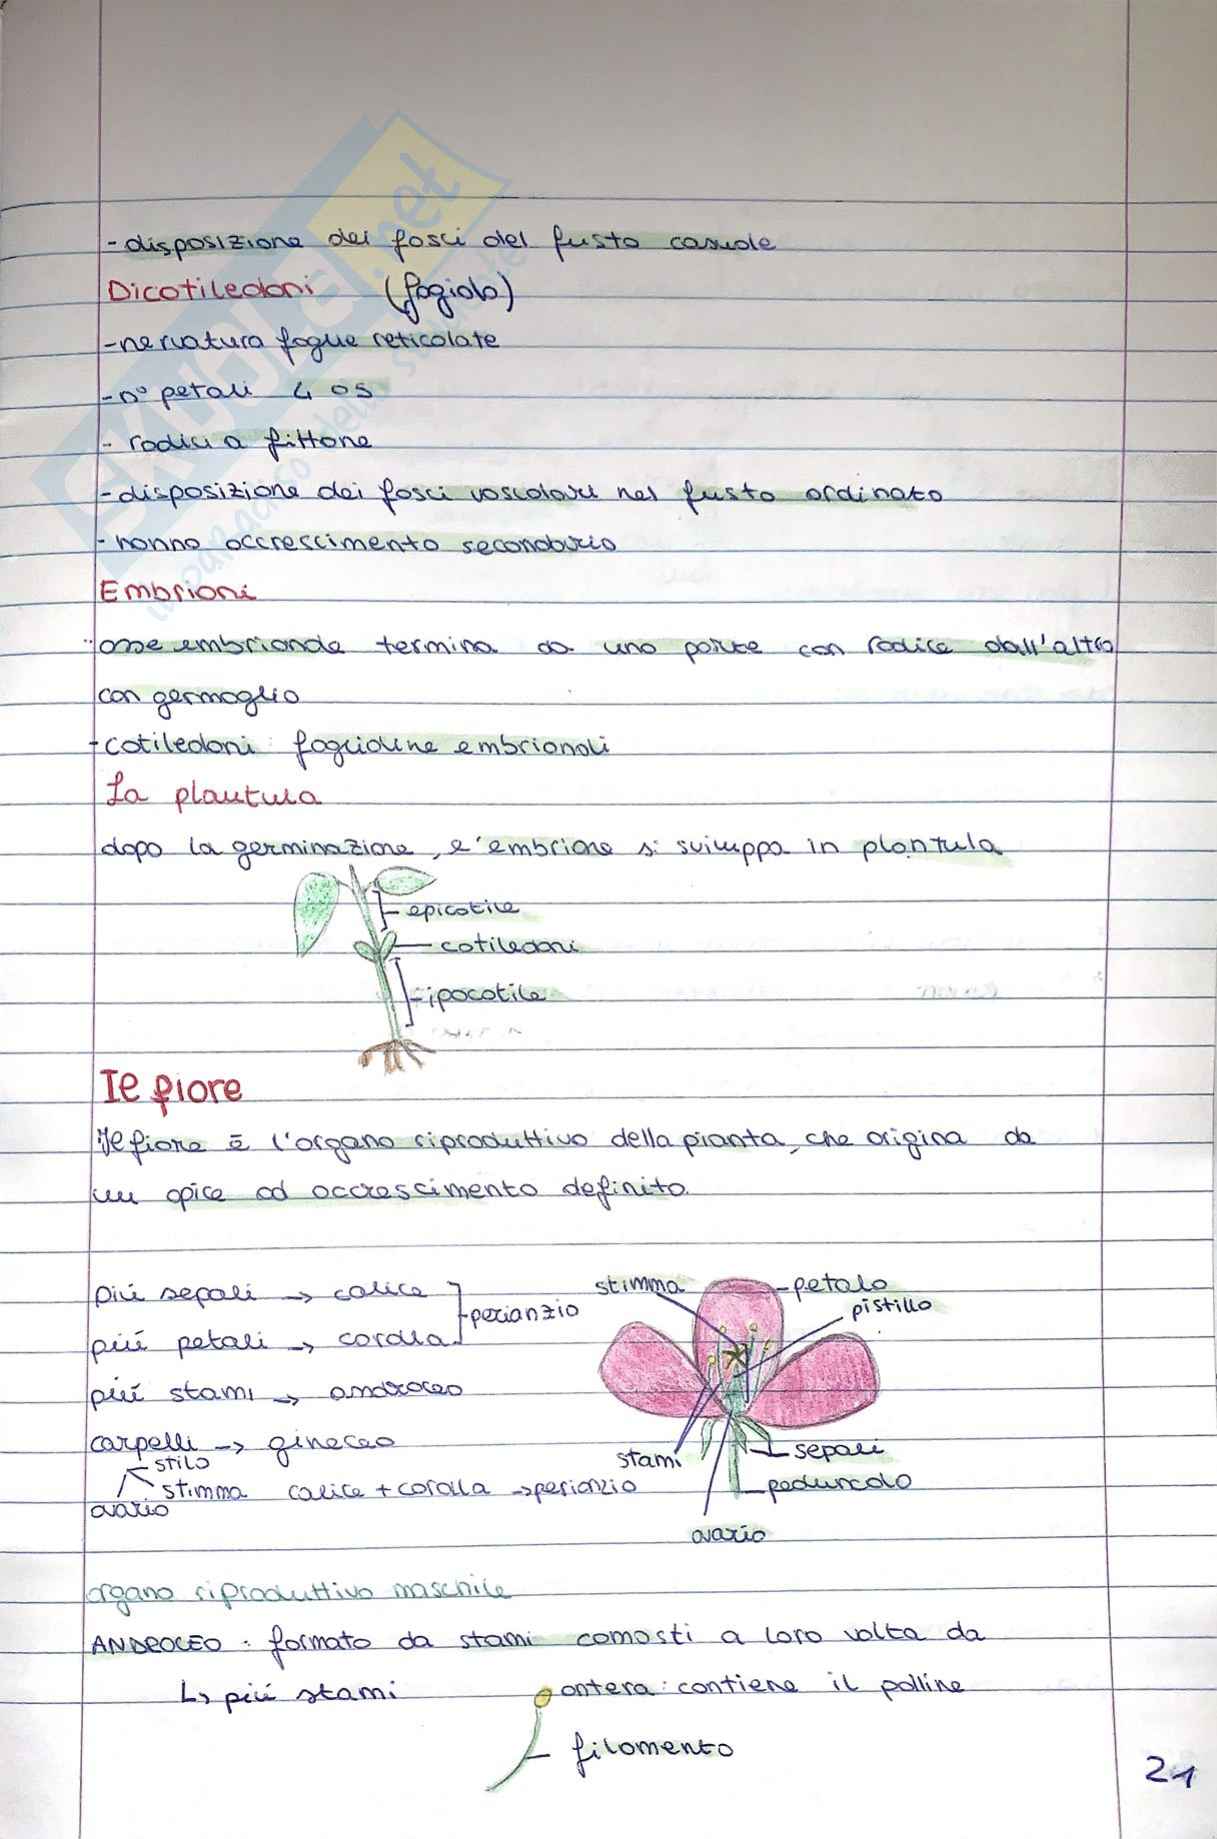 - disposizione dei fasci del fusto casuale
Dicotiledoni (fagiolo)
- nervatura foglie reticolate
- n° petali 4 o 5
- radici a fittone
- disposizione dei fasci vascolari nel fusto ordinato
- hanno accrescimento secondario
Embrioni
- asse embrionale termina da una parte con radice dall'altra
con germoglio
- cotiledoni: foglioline embrionali
La plantula
dopo la germinazione, l'embrione si sviluppa in plantula
epicotile
cotiledoni
ipocotile
Il fiore
Il fiore è l'organo riproduttivo della pianta, che origina da
un apice ad accrescimento definito.
più sepali → calice
perianzio
più petali → corolla
più stami → androceo
carpelli → gineceo
stilo
stimma
ovario
calice + corolla → perianzio
stimma
petalo
pistillo
stami
sepali
peduncolo
ovario
organo riproduttivo maschile
ANDROCEO: formato da stami comosti a loro volta da
↳ più stami
antera: contiene il polline
filamento
21
SKUOLA.net